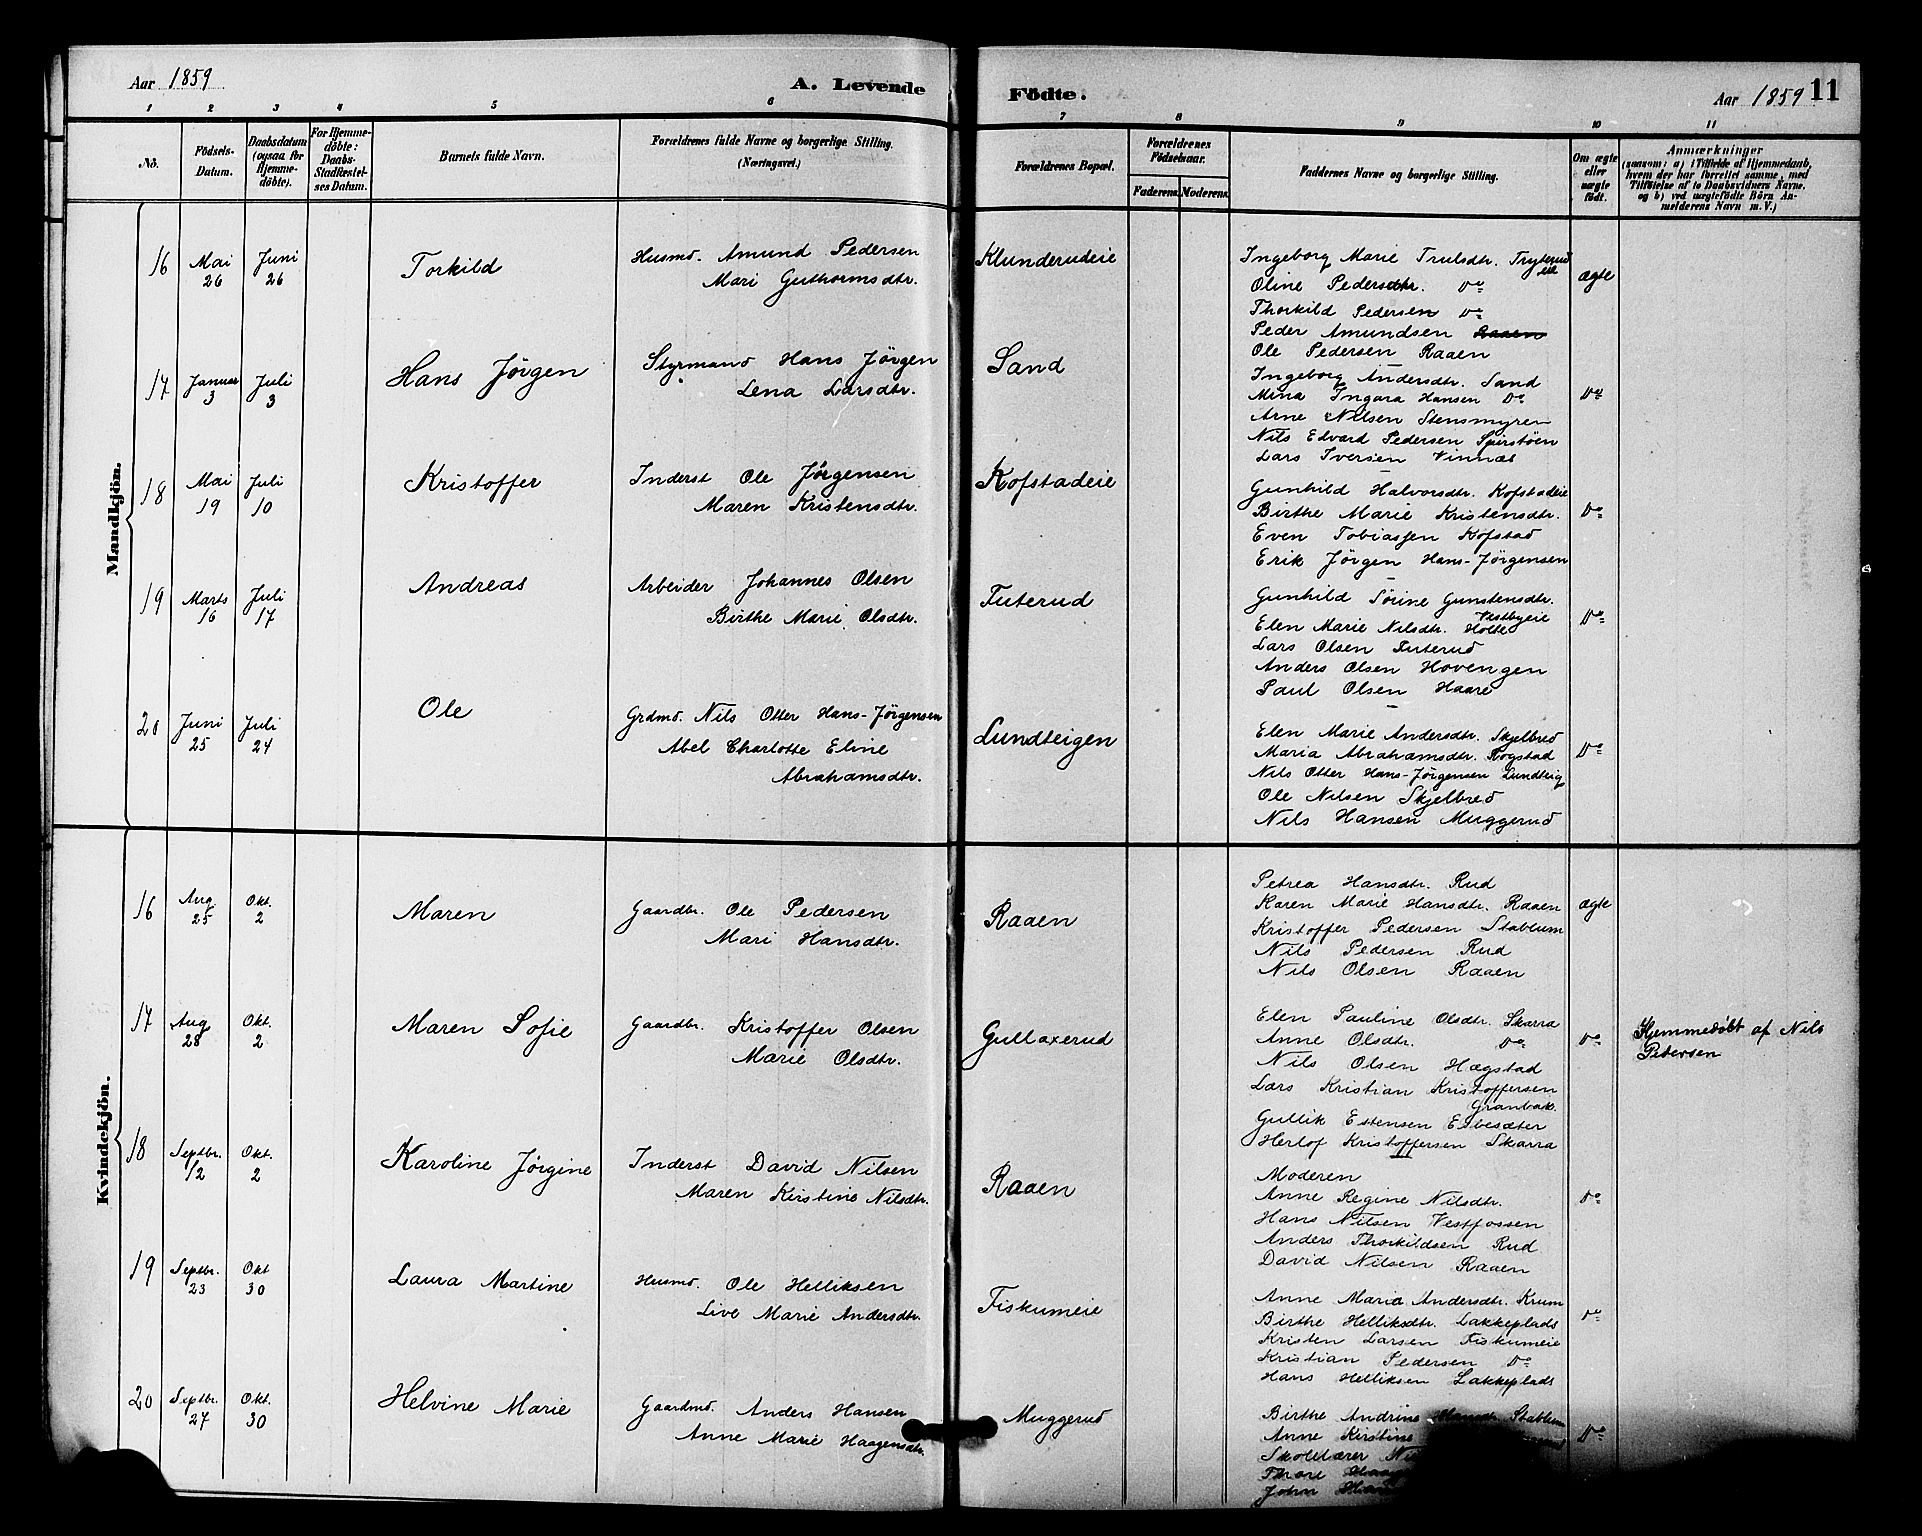 Aar 1859
A. Levende
Födte.
Aar 1859 11
1 2 3 4 5 6 7 8 9 10 11
No.
Födsels-
Datum.
Daabsdatum
(ogsaa for
Hjemme-
döbte).
For Hjemme-
döbte:
Daabs-
Stadfæstel-
ses Datum.
Barnets fulde Navn.
Forældrenes fulde Navne og borgerlige Stilling.
(Næringsvei.)
Forældrenes Bopæl.
Forældrenes
Födselsaar.
Faderens. Moderens.
Faddernes Navne og borgerlige Stilling.
Om ægte
eller
uægte
födt.
Anmærkninger
(saasom: a) i Tilfælde af Hjemmedaab,
hvem der har forrettet samme, med
Tilföielse af to Daabsvidners Navne,
og b) ved uægtefödte Börn An-
melderens Navn m.V.)
Mandkjön.
16 Mai 26 Juni 26 Torkild
Husmd. Amund Pedersen
Mari Guthormsdtr.
Klunderudeie
Ingeborg Marie Trulsdtr. Tryterud
eie
Oline Pedersdtr. Do
Thorkild Pedersen Do
Peder Amundsen Raaen
Ole Pedersen Raaen
ægte
17 Januar 3 Juli 3 Hans Jörgen
Styrmand Hans Jörgen
Lena Larsdtr.
Sand
Ingeborg Andersdtr. Sand
Mina Ingara Hansen Do
Arne Nilsen Stensmyren
Nils Edvard Pedersen
Lars Iversen Vinnæs
Do
18 Mai 19 Juli 10 Kristoffer
Inderst Ole Jörgensen
Maren Kristensdtr.
Kofstadeie
Gunhild Halvorsdtr. Kofstadeie
Birthe Marie Kristensdtr.
Even Tobiassen Kofstad
Erik Jörgen Hans-Jörgensen
Do
19 Marts 16 Juli 17 Andreas
Arbeider Johannes Olsen
Birthe Marie Olsdtr.
Tuterud
Gunhild Sörine Gunstensdtr.
Vestbyeie
Elen Marie Nilsdtr. Holte
Lars Olsen Tuterud
Anders Olsen Hovengen
Paul Olsen Haare
Do
20 Juni 25 Juli 24 Ole
Grdmd. Nils Otter Hans-Jörgensen
Abel Charlotte Eline
Abrahamsdtr.
Lundteigen
Elen Marie Andersdtr. Skjelbred
Maria Abrahamsdtr. Fogstad
Nils Otter Hans-Jörgensen Lundteig
Ole Nilsen Skjelbred
Nils Hansen Muggerud
Do
Kvindekjön.
16 Aug 25 Okt. 2 Maren
Gaardbr. Ole Pedersen
Mari Hansdtr.
Raaen
Petrea Hansdtr. Rud
Karen Marie Hansdtr. Raaen
Kristoffer Pedersen Stablum
Nils Pedersen Rud
Nils Olsen Raaen
ægte
17 Aug 28 Okt. 2 Maren Sofie
Gaardbr. Kristoffer Olsen
Marie Olsdtr.
Gullaxerud
Elen Pauline Olsdtr. Skarra
Anne Olsdtr. Do
Nils Olsen Hægstad
Lars Kristian Kristoffersen
Granbak.
Gullik Estensen Esbesæter
Herlof Kristoffersen Skarra
Do
Hjemmedöbt af Nils
Pedersen
18 Septbr. 12 Okt. 2 Karoline Jörgine
Inderst David Nilsen
Maren Kirstine Nilsdtr.
Raaen
Moderen
Anne Regine Nilsdtr.
Hans Nilsen Vestfossen
Anders Thorkildsen Rud
David Nilsen Raaen
Do
19 Septbr. 23 Okt 30 Laura Martine
Husmd. Ole Helliksen
Live Marie Andersdtr.
Fiskumeie
Anne Maria Andersdtr. Krum
Birthe Helliksdtr. Lakkeplads
Kristen Larsen Fiskumeie
Kristian Pedersen Do
Hans Helliksen Lakkeplads
Do
20 Septbr. 27 Okt. 30 Helvine Marie
Gaardmd. Anders Hansen
Anne Marie Haagensdtr.
Muggerud
Birthe Andrine Stablum
Anne Kirstine
Skolelærer
Thore
John
Do